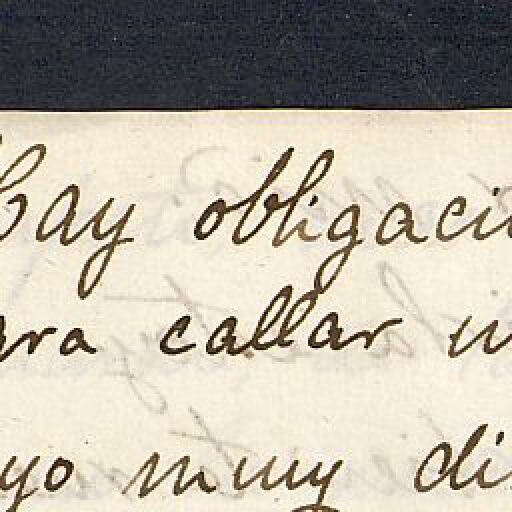 Hay obligaci
ara callar
yo muy di